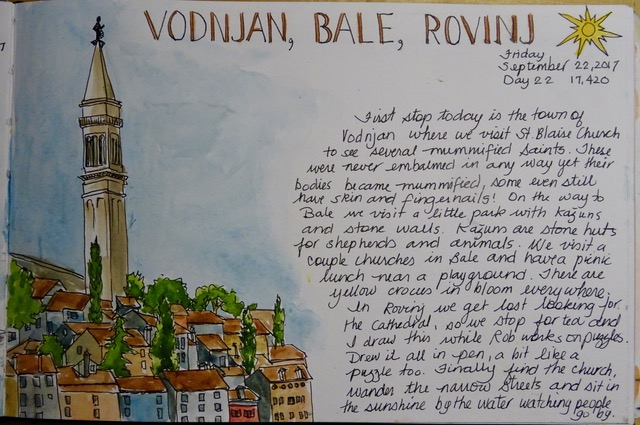 VODNJAN, BALE, ROVINJ
Friday
September 22, 2017
Day 22 17,420
First stop today is the town of
Vodnjan where we visit St. Blaise Church
to see several mummified saints. These
were never embalmed in any way yet their
bodies became mummified, some even still
have skin and fingernails! On the way to
Bale we visit a little park with Kažuns
and stone walls. Kažuns are stone huts
for shepherds and animals. We visit a
couple churches in Bale and have a picnic
lunch near a playground. There are
yellow crocus in bloom everywhere.
In Rovinj we get lost looking for
the cathedral, so we stop for tea and
I draw this while Rob works on puzzles.
Drew it all in pen, a bit like a
puzzle too. Finally find the church,
wander the narrow streets and sit in
the sunshine by the water watching people
go by.